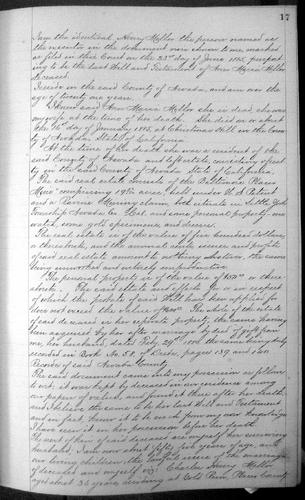 17
I am the identical Henry Mellor the person named as
the executor in the document now shown to me, marked
as filed in this Court on the 23rd day of June 1885, purport-
ing to be the last Will and Testament of Ann Maria Mellor
deceased.
I reside in the said County of Nevada, and am over the
age of twenty one years.
I knew said Ann Maria Mellor she is dead, she was
my wife at the time of her death. She died on or about
the 16th day of January 1885, at Christmas Hill in the Coun-
ty of Nevada State of California
At the time of her death she was a resident of the
said County of Nevada and left estate, consisting of realty
in the said County of Nevada State of California.
The said real estate consists of the
comprising 19 acres, held under U.S. Patent
and a Ravine Mining claim, both situate in Little York
Township Nevada Co. Cal. and some personal property, one
watch, some gold specimens, and dresses.
The real estate is of the value of five hundred dollars,
or thereabouts, and the annual rents issues and profits
of said real estate amount to nothing whatever, the same
being unworked and entirely unproductive.
The personal property is of the value of $50 or there-
abouts. The said estate and effects for or in respect
of which the probate of said Will has been applied for
does not exceed the value of The whole of the estate
of said deceased is her separate property, the same having
been acquired by her after marriage by deed of gift from
me, her husband, dated Feby. 29th and thereon being duly
recorded in Book No. 58, of Deeds, pages 139, and
Records of said Nevada County.
The said document came into my possession as follows
to wit, it was kept by deceased in our residence among
our papers of value, and found it there after her death,
and I believe the same to be her last Will and Testament
and in fact, know it to be such from my own knowledge
I have seen it in her possession before her death.
The next of kin of said deceased are myself her surviving
husband, I am now about fifty four years of age, and
one living children the issue of the marriage
of deceased and myself viz: Charles Henry Mellor
aged about 32 years, residing at